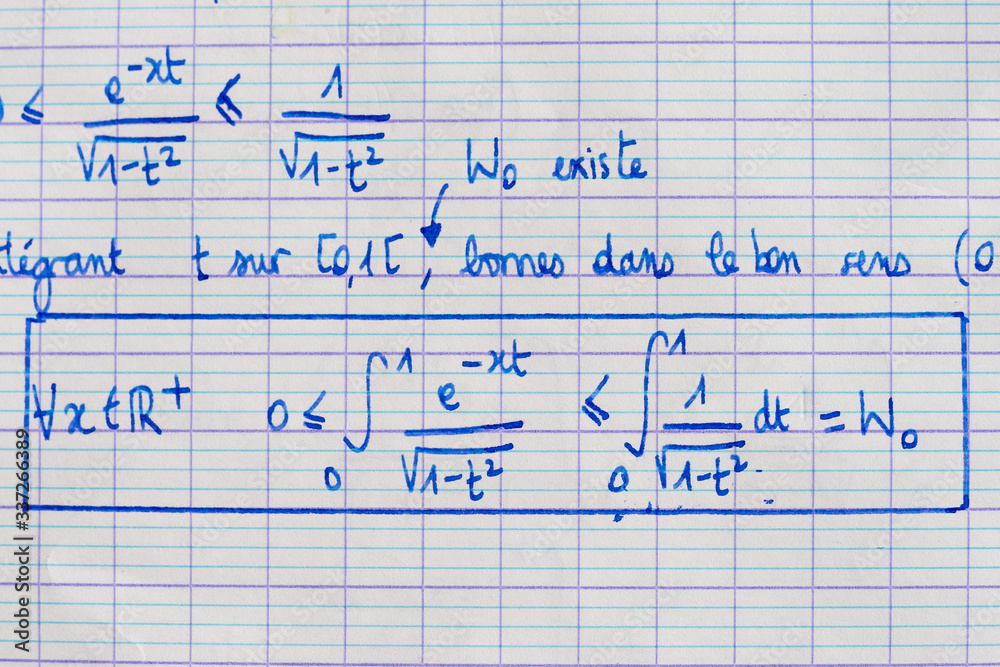 ≤ e^{-xt}/√(1-t²) ≤ 1/√(1-t²)
W₀ existe
tégrant t sur [0,1[, bornes dans le bon sens (0
∀x∈ℝ⁺ 0 ≤ ∫₀¹ e^{-xt}/√(1-t²) ≤ ∫₀¹ 1/√(1-t²) dt = W₀
Adobe Stock | #337266389